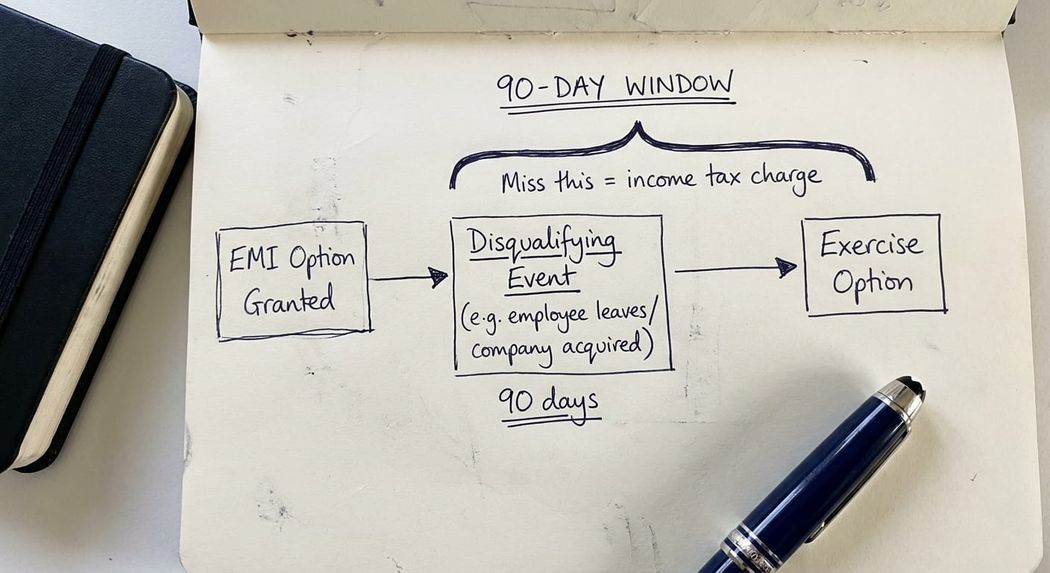 90-DAY WINDOW
Miss this = income tax charge
EMI Option
Granted
Disqualifying
Event
(e.g. employee leaves/
company acquired)
90 days
Exercise
Option